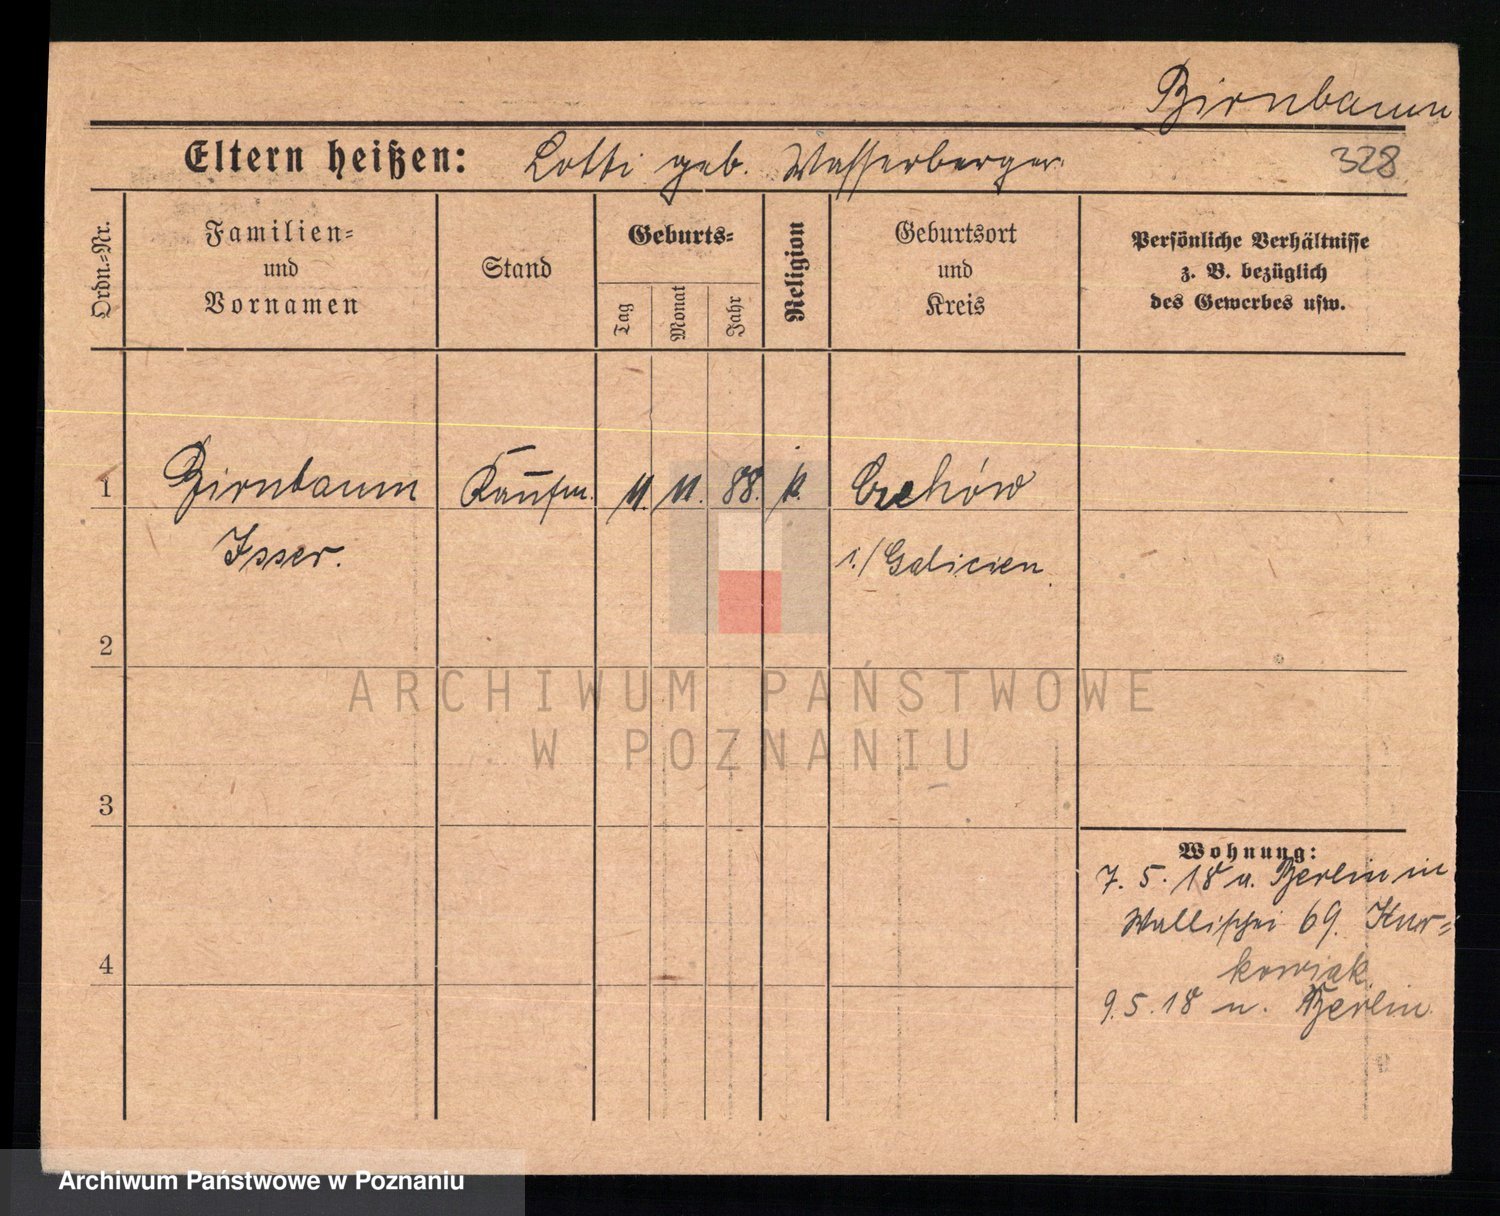 Birnbaum
Eltern heißen: Lotti geb. Wasserberger.
328
Ordn.-Nr.
Familien-
und
Vornamen
Stand
Geburts-
Tag
Monat
Jahr
Religion
Geburtsort
und
Kreis
Persönliche Verhältnisse
z. B. bezüglich
des Gewerbes usw.
1 Birnbaum Kaufm. 11. 11. 88. Czchów
Isser. i./Galicien.
2
ARCHIWUM PAŃSTWOWE
W POZNANIU
3
Wohnung:
7. 5. 18 v. Berlin in
Wallischei 69. Kur-
kowiak
4
9. 5. 18 n. Berlin.
Archiwum Państwowe w Poznaniu